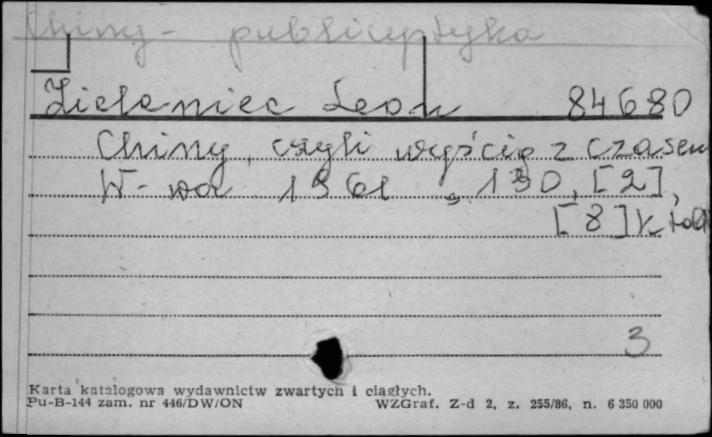 Chiny - publicystyka
Zieleniec Leon 84680
Chiny, czyli wyścig z czasem
W-wa 1961, 130, [2],
[8] k tabl
3
Karta katalogowa wydawnictw zwartych i ciągłych.
Pu-B-144 zam. nr 446/DW/ON WZGraf. Z-d 2, z. 255/86, n. 6 350 000